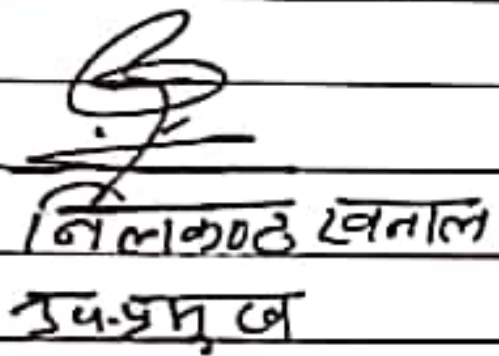 निलकण्ठ खनाल
उप-प्रमुख